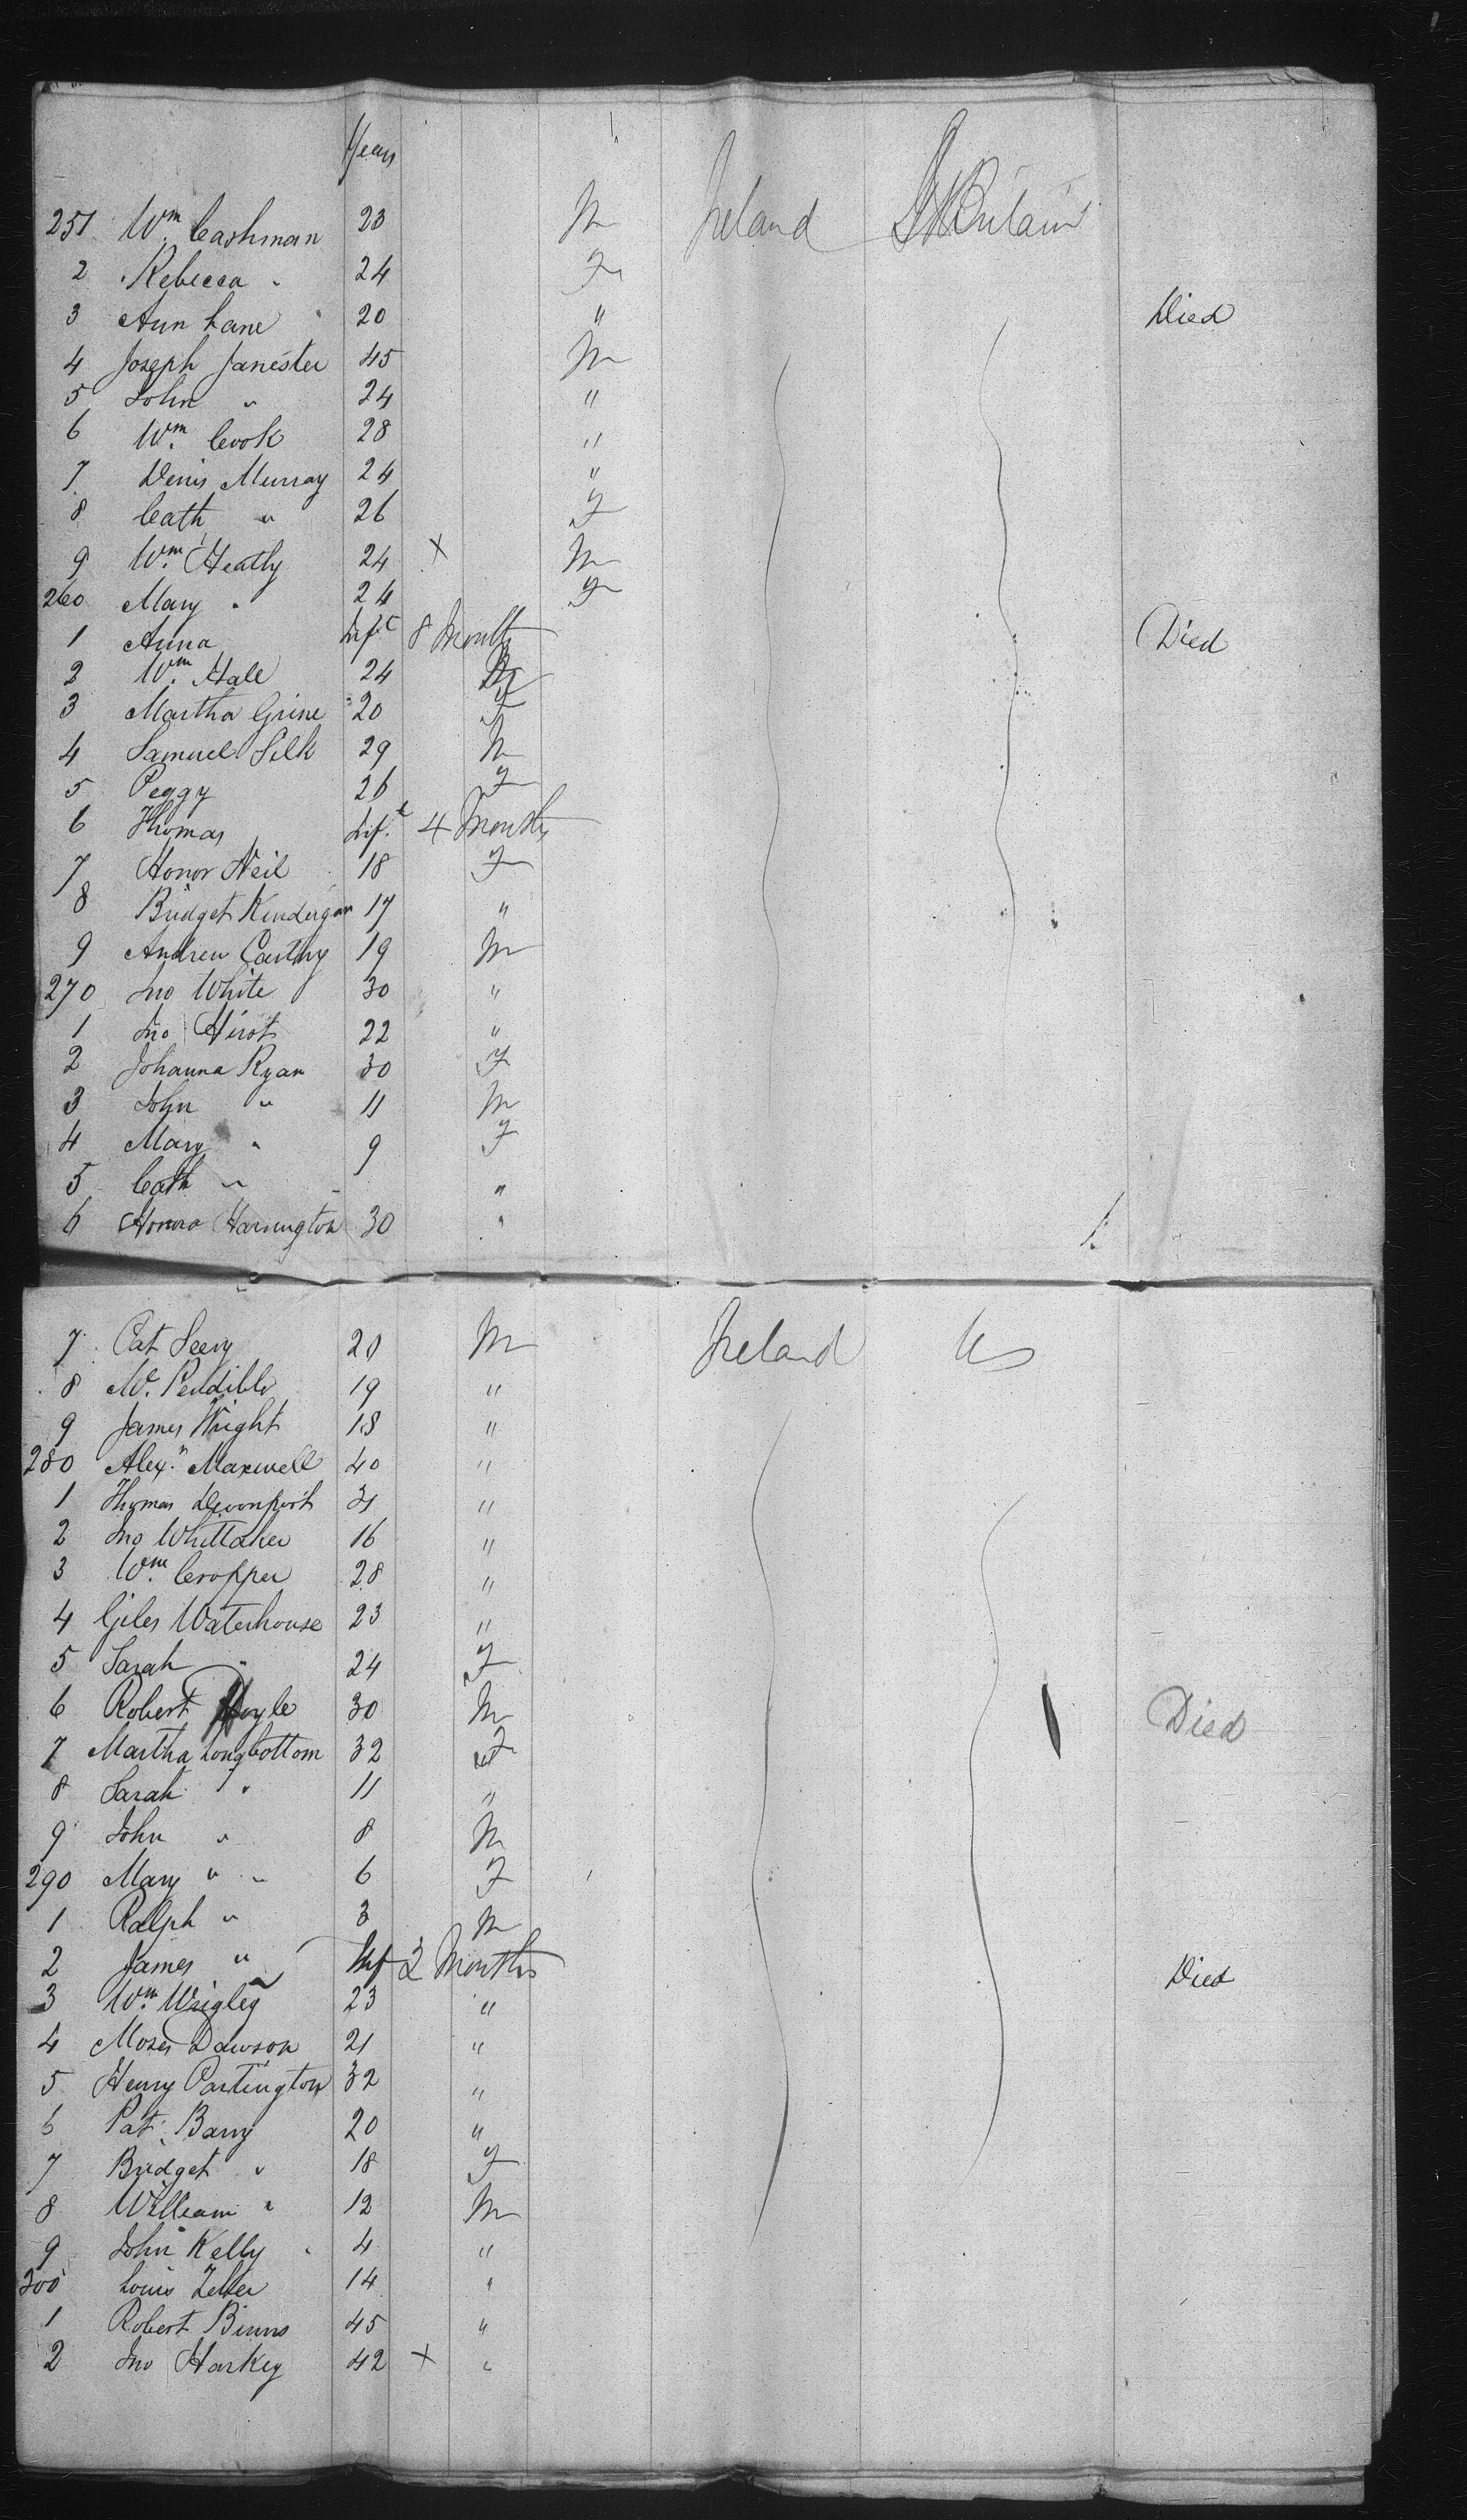 Years
251 Wm Cashman 23 M Ireland Gt Britain
2 Rebecca " 24 F
3 Ann Lane 20 " Died
4 Joseph Janester 45 M
5 John " 24 "
6 Wm Cook 28 "
7 Denis Murray 24 "
8 Cath " 26 F
9 Wm Heatly 24 X M
260 Mary " 24 F
1 Anna Inft 8 Months Died
2 Wm Hale 24 M
3 Martha Grine 20 F
4 Samuel Silk 29 M
5 Peggy 26 F
6 Thomas Inft 4 Months
7 Honor Neil 18 F
8 Bridget Kindergan 17 "
9 Andrew Carthy 19 M
270 Jno White 30 "
1 Jno Hirst 22 "
2 Johanna Ryan 30 F
3 John " 11 M
4 Mary " 9 F
5 Cath " "
6 Honora Harrington 30 "
7 Pat 20 M Ireland US
8 M. 19 "
9 James Wright 18 "
280 Alexr Maxwell 40 "
1 Thomas Devonport 31 "
2 Jno Whittaker 16 "
3 Wm Cropper 28 "
4 Giles Waterhouse 23 "
5 Sarah " 24 F
6 Robert Hoyle 30 M Died
7 Martha Longbottom 32 F
8 Sarah " 11 "
9 John " 8 M
290 Mary " 6 F
1 Ralph " 3 M
2 James " Inf 2 Months Died
3 Wm Wrigley 23 "
4 Moses Dawson 21 "
5 Henry Partington 32 "
6 Pat Barry 20 "
7 Bridget " 18 F
8 William " 12 M
9 John Kelly 4 "
300 Louis 14 "
1 Robert Binns 45 "
2 Jno Harkey 42 X "